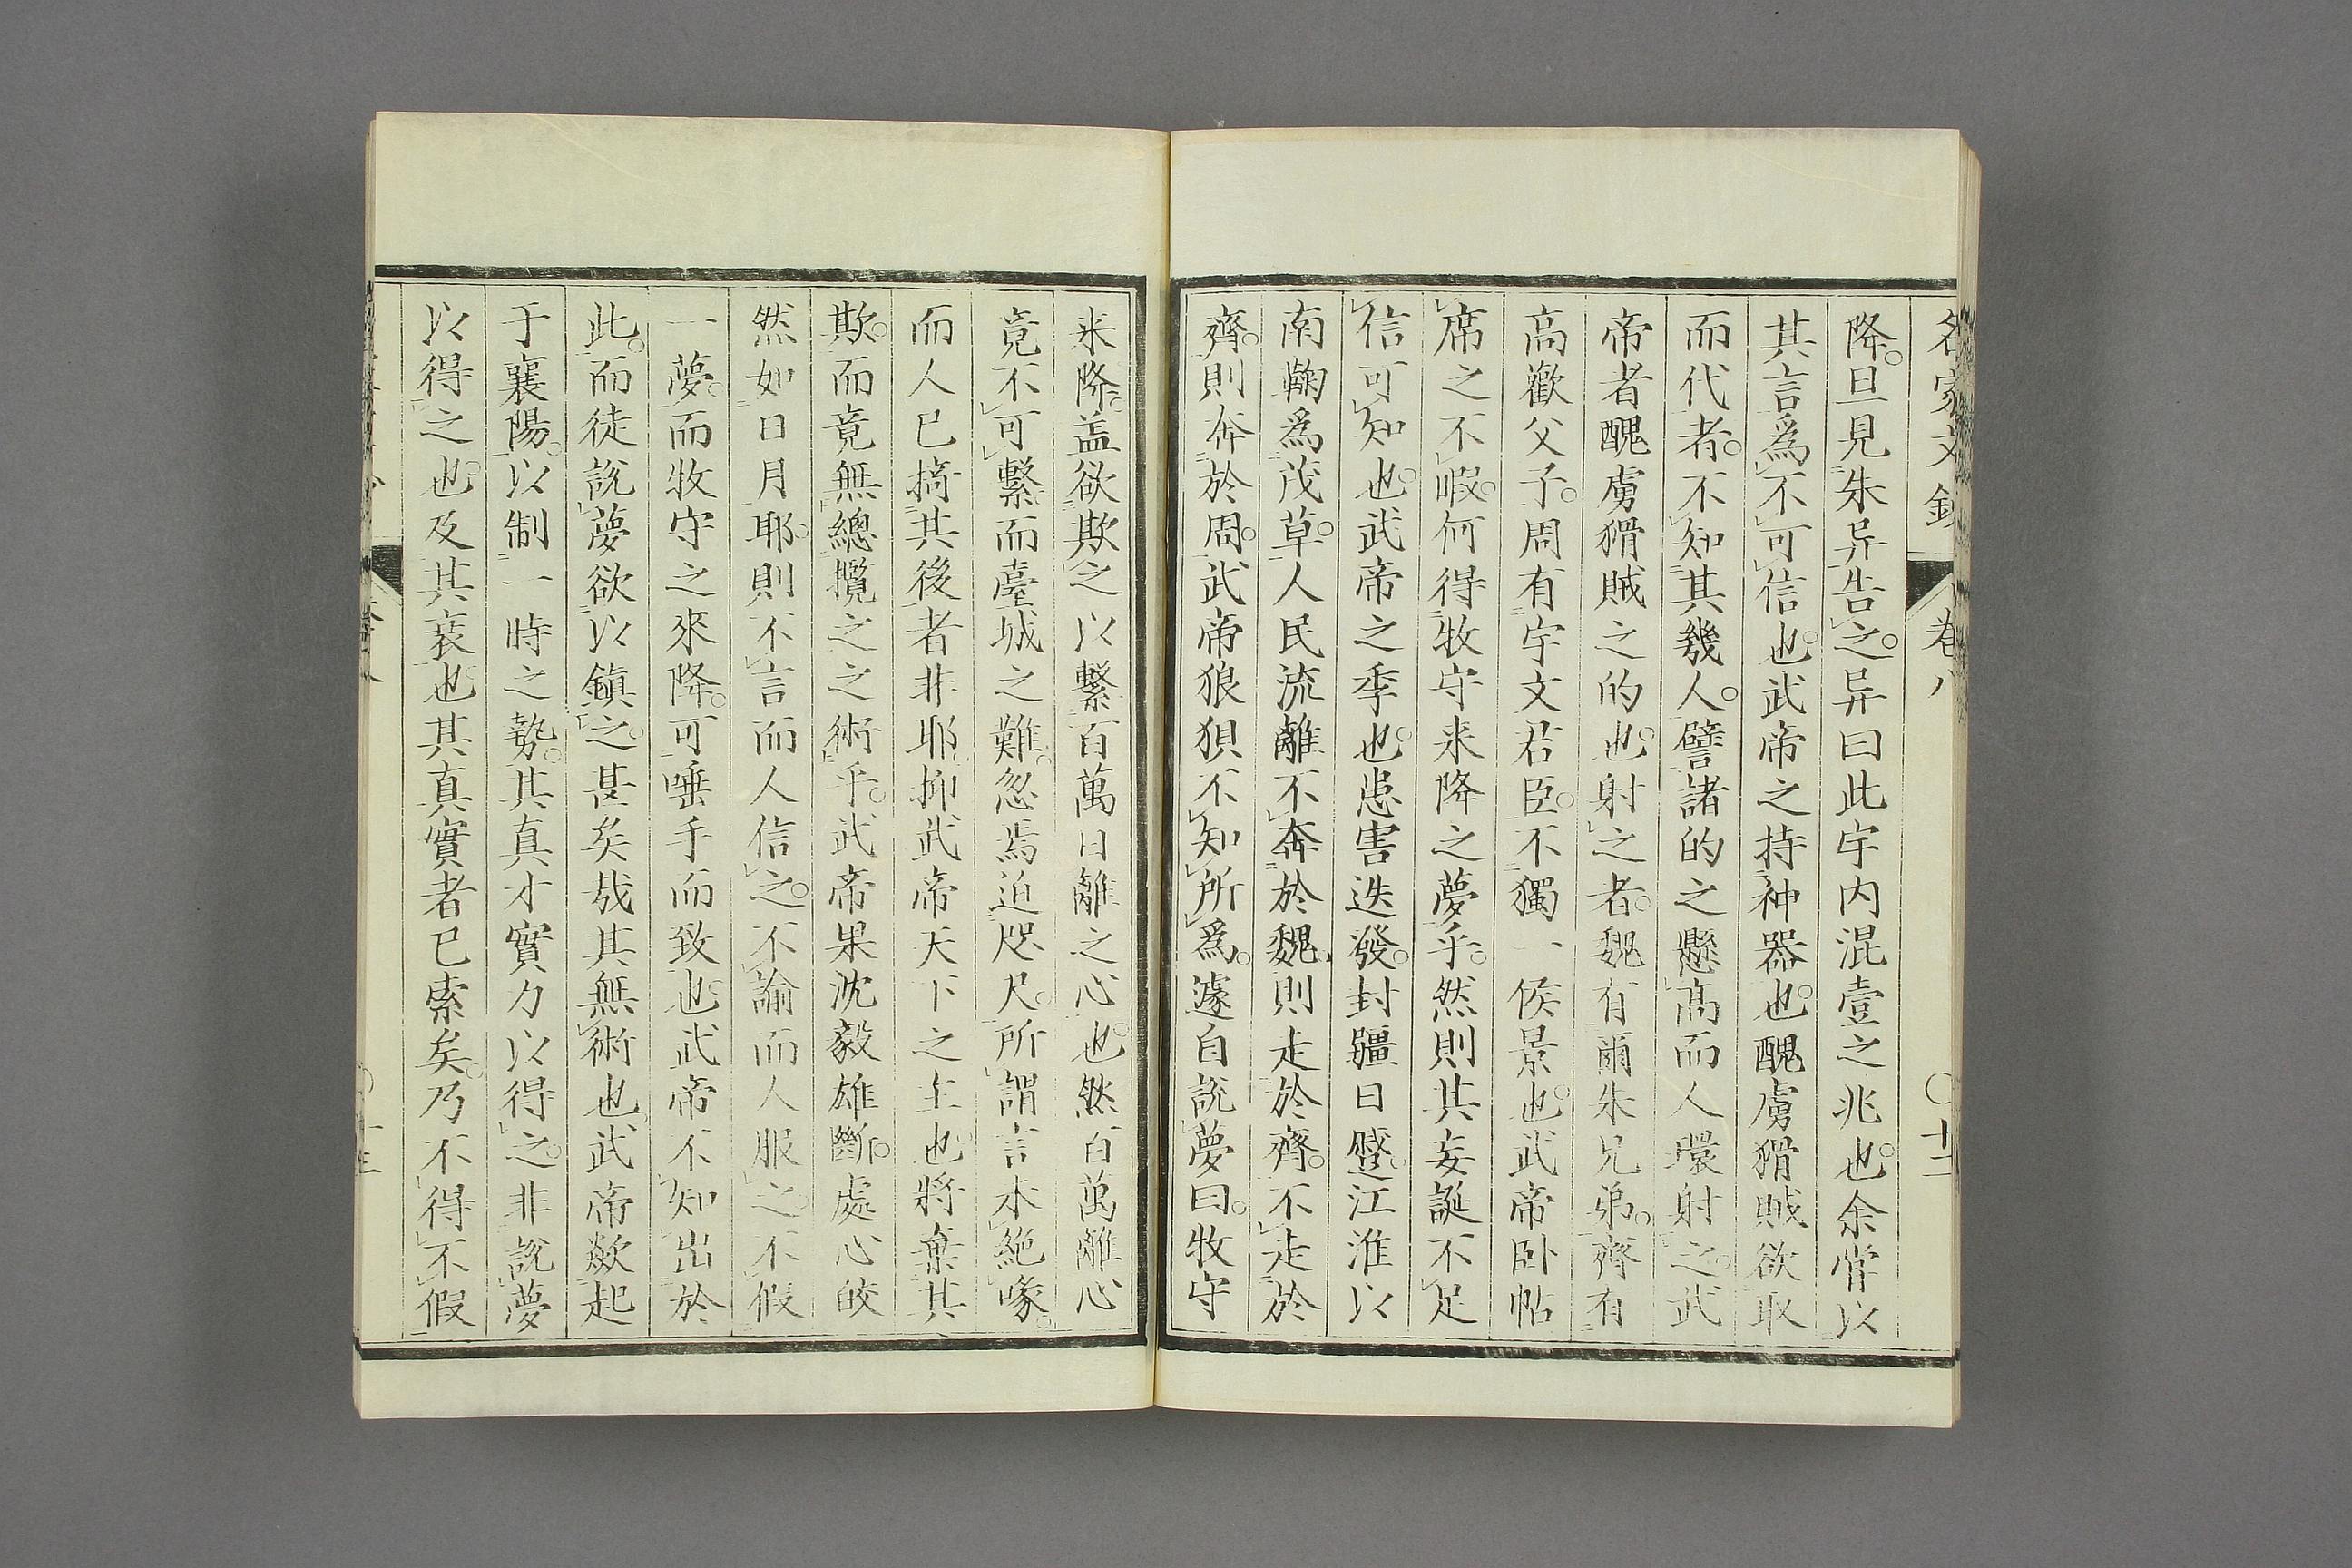 名家文鈔 卷八 〇十二
降。旦見朱异告之。异曰此宇内混壹之兆也。余甞以
其言爲不可信也。武帝之持神器也。醜虜猾賊欲取
而代者。不知其幾人。譬諸的之懸高而人環射之。武
帝者醜虜猾賊之的也。射之者。魏有爾朱兄弟。齊有
高歡父子。周有宇文君臣。不獨一侯景也。武帝卧帖
席之不暇。何得牧守来降之夢乎。然則其妄誕不足
信可知也。武帝之季也。患害迭發。封疆日蹙。江淮以
南鞠爲茂草。人民流離不奔於魏。則走於齊。不走於
齊。則奔於周。武帝狼狽不知所爲。遽自説夢曰。牧守
来降。盖欲欺之以繫百萬日離之心也。然百萬離心
竟不可繫。而臺城之難。忽焉迫咫尺。所謂言未絶喙。
而人已摘其後者非耶。抑武帝天下之主也。將棄其
欺。而竟無總攬之之術乎。武帝果沈毅雄斷。處心皎
然如日月耶。則不言而人信之。不諭而人服之。不假
一夢。而牧守之來降。可唾手而致也。武帝不知出於
此。而徒説夢欲以鎮之。甚矣哉其無術也。武帝歘起
于襄陽。以制一時之勢。其真才實力以得之。非説夢
以得之也。及其衰也。其真實者已索矣。乃不得不假